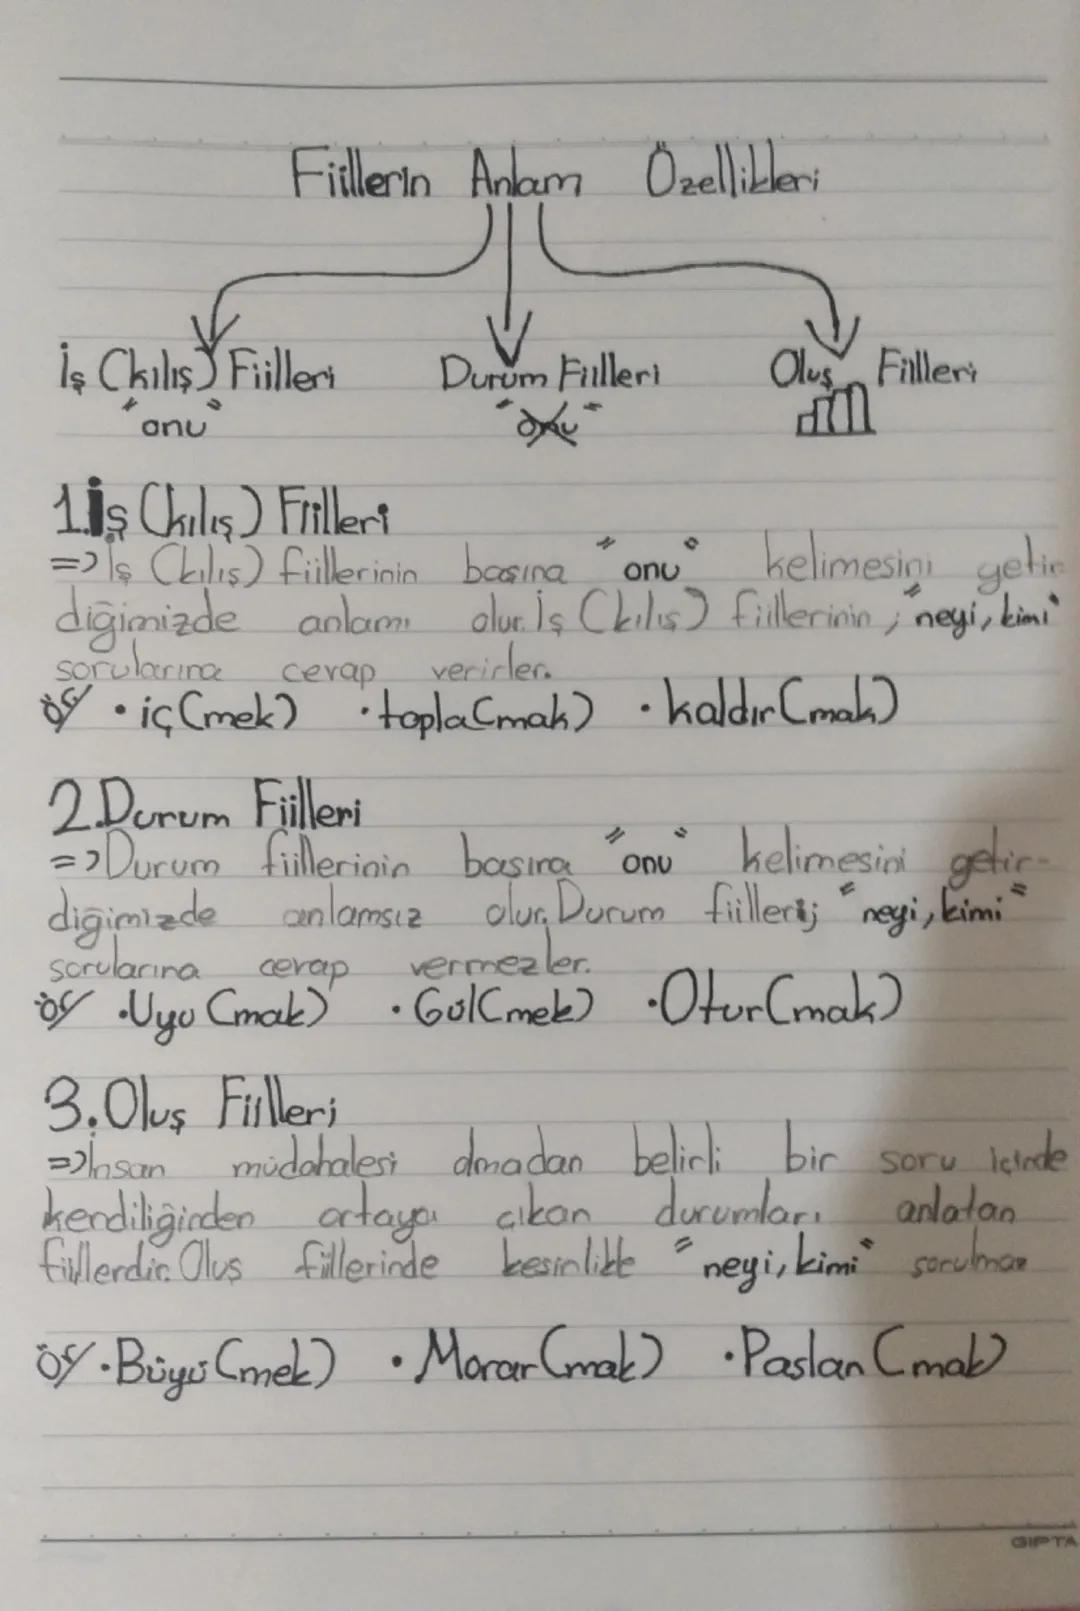 Fiillerin Anlam Özellikleri
İş (kılış) Fiilleri Durum Fiilleri Oluş Fiilleri
"onu" "onu"
1.İş (kılış) Fiilleri
=> İş (kılış) fiillerinin başına "onu" kelimesini getir
diğimizde anlamı olur. İş (kılış) fiillerinin ; "neyi, kimi"
sorularına cevap verirler.
ör/ • iç(mek) • topla(mak) • kaldır(mak)
2.Durum Fiilleri
=> Durum fiillerinin başına "onu" kelimesini getir-
diğimizde anlamsız olur. Durum fiilleri; "neyi, kimi"
sorularına cevap vermezler.
ör/ • Uyu(mak) • Gül(mek) • Otur(mak)
3.Oluş Fiilleri
=> İnsan müdahalesi olmadan belirli bir soru içinde
kendiliğinden ortaya çıkan durumları anlatan
fiillerdir. Oluş fiillerinde kesinlikle "neyi, kimi" sorulmaz
ör/ • Büyü(mek) • Morar(mak) • Paslan(mak)
GIPTA